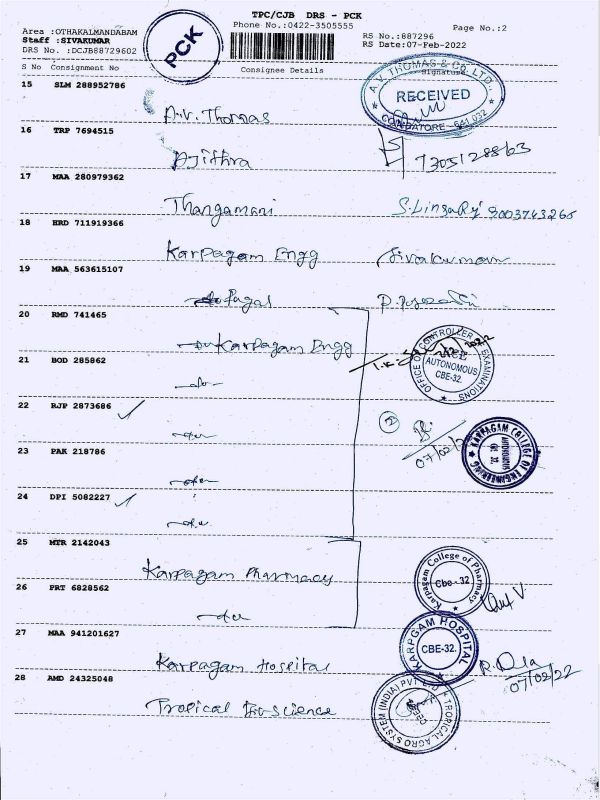 TPC/CJB DRS - PCK
Phone No.:0422-3505555
Page No.:2
Area :OTHAKALMANDABAM
Staff :SIVAKUMAR
DRS No. :DCJB88729602
PCK
RS No.:887296
RS Date:07-Feb-2022
S No Consignment No Consignee Details Signature
15 SLM 288952786 A.V. Thomas
A.V. THOMAS & CO. LTD.,
RECEIVED
COIMBATORE - 641 032
16 TRP 7694515 Ajithra 7305128863
17 MAA 280979362 Thangamani S.Lingaraj 9003743265
18 HRD 711919366 Karpagam Engg Sivakumar
19 MAA 563615107
20 RMD 741465 Karpagam Engg
OFFICE OF CONTROLLER EXAMINATIONS
AUTONOMOUS
CBE-32.
21 BOD 285862 -do-
22 RJP 2873686 -do-
2
07/02/2
KARPAGAM COLLEGE OF ENGINEERING
AUTONOMOUS
CBE. 32.
23 PAK 218786 -do-
24 DPI 5082227 -do-
25 MTR 2142043 Karpagam Pharmacy
Karpagam College of Pharmacy
Cbe-32
26 PRT 6828562 -do-
27 MAA 941201627 Karpagam Hospital
KARPGAM HOSPITAL
CBE-32.
07/02/22
28 AMD 24325048 Tropical Bio-science
TROPICAL AGRO SYSTEM (INDIA) PVT. LTD